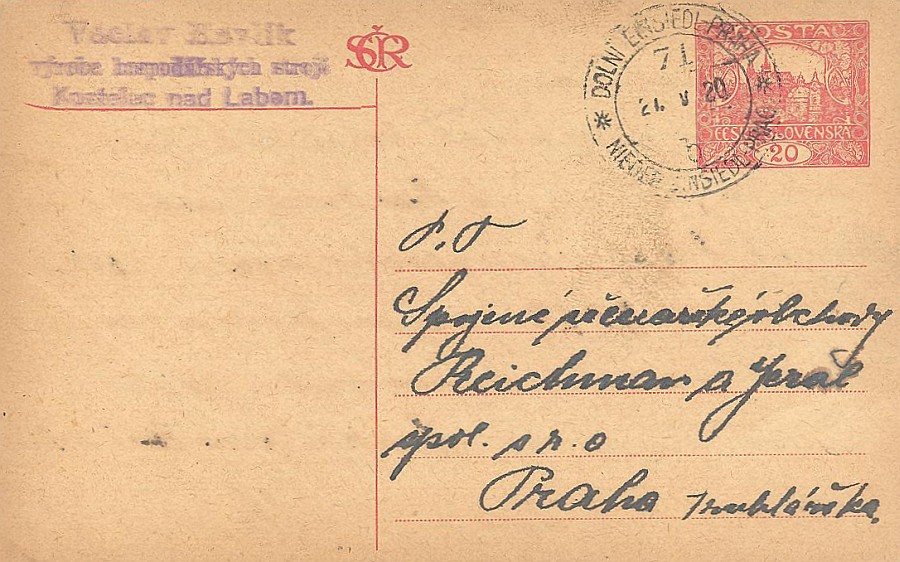 Václav
výroba hospodářských strojů
Kostelec nad Labem.
SČR
POSTA
ČESKOSLOVENSKÁ
20
DOLNÍ EINSIEDL-PRAHA
71
21. V 20
NIEDER EINSIEDL-PRAG
P. T
Spojené
Reichman a Jeral
spol. s r. o
Praha Truhlářská